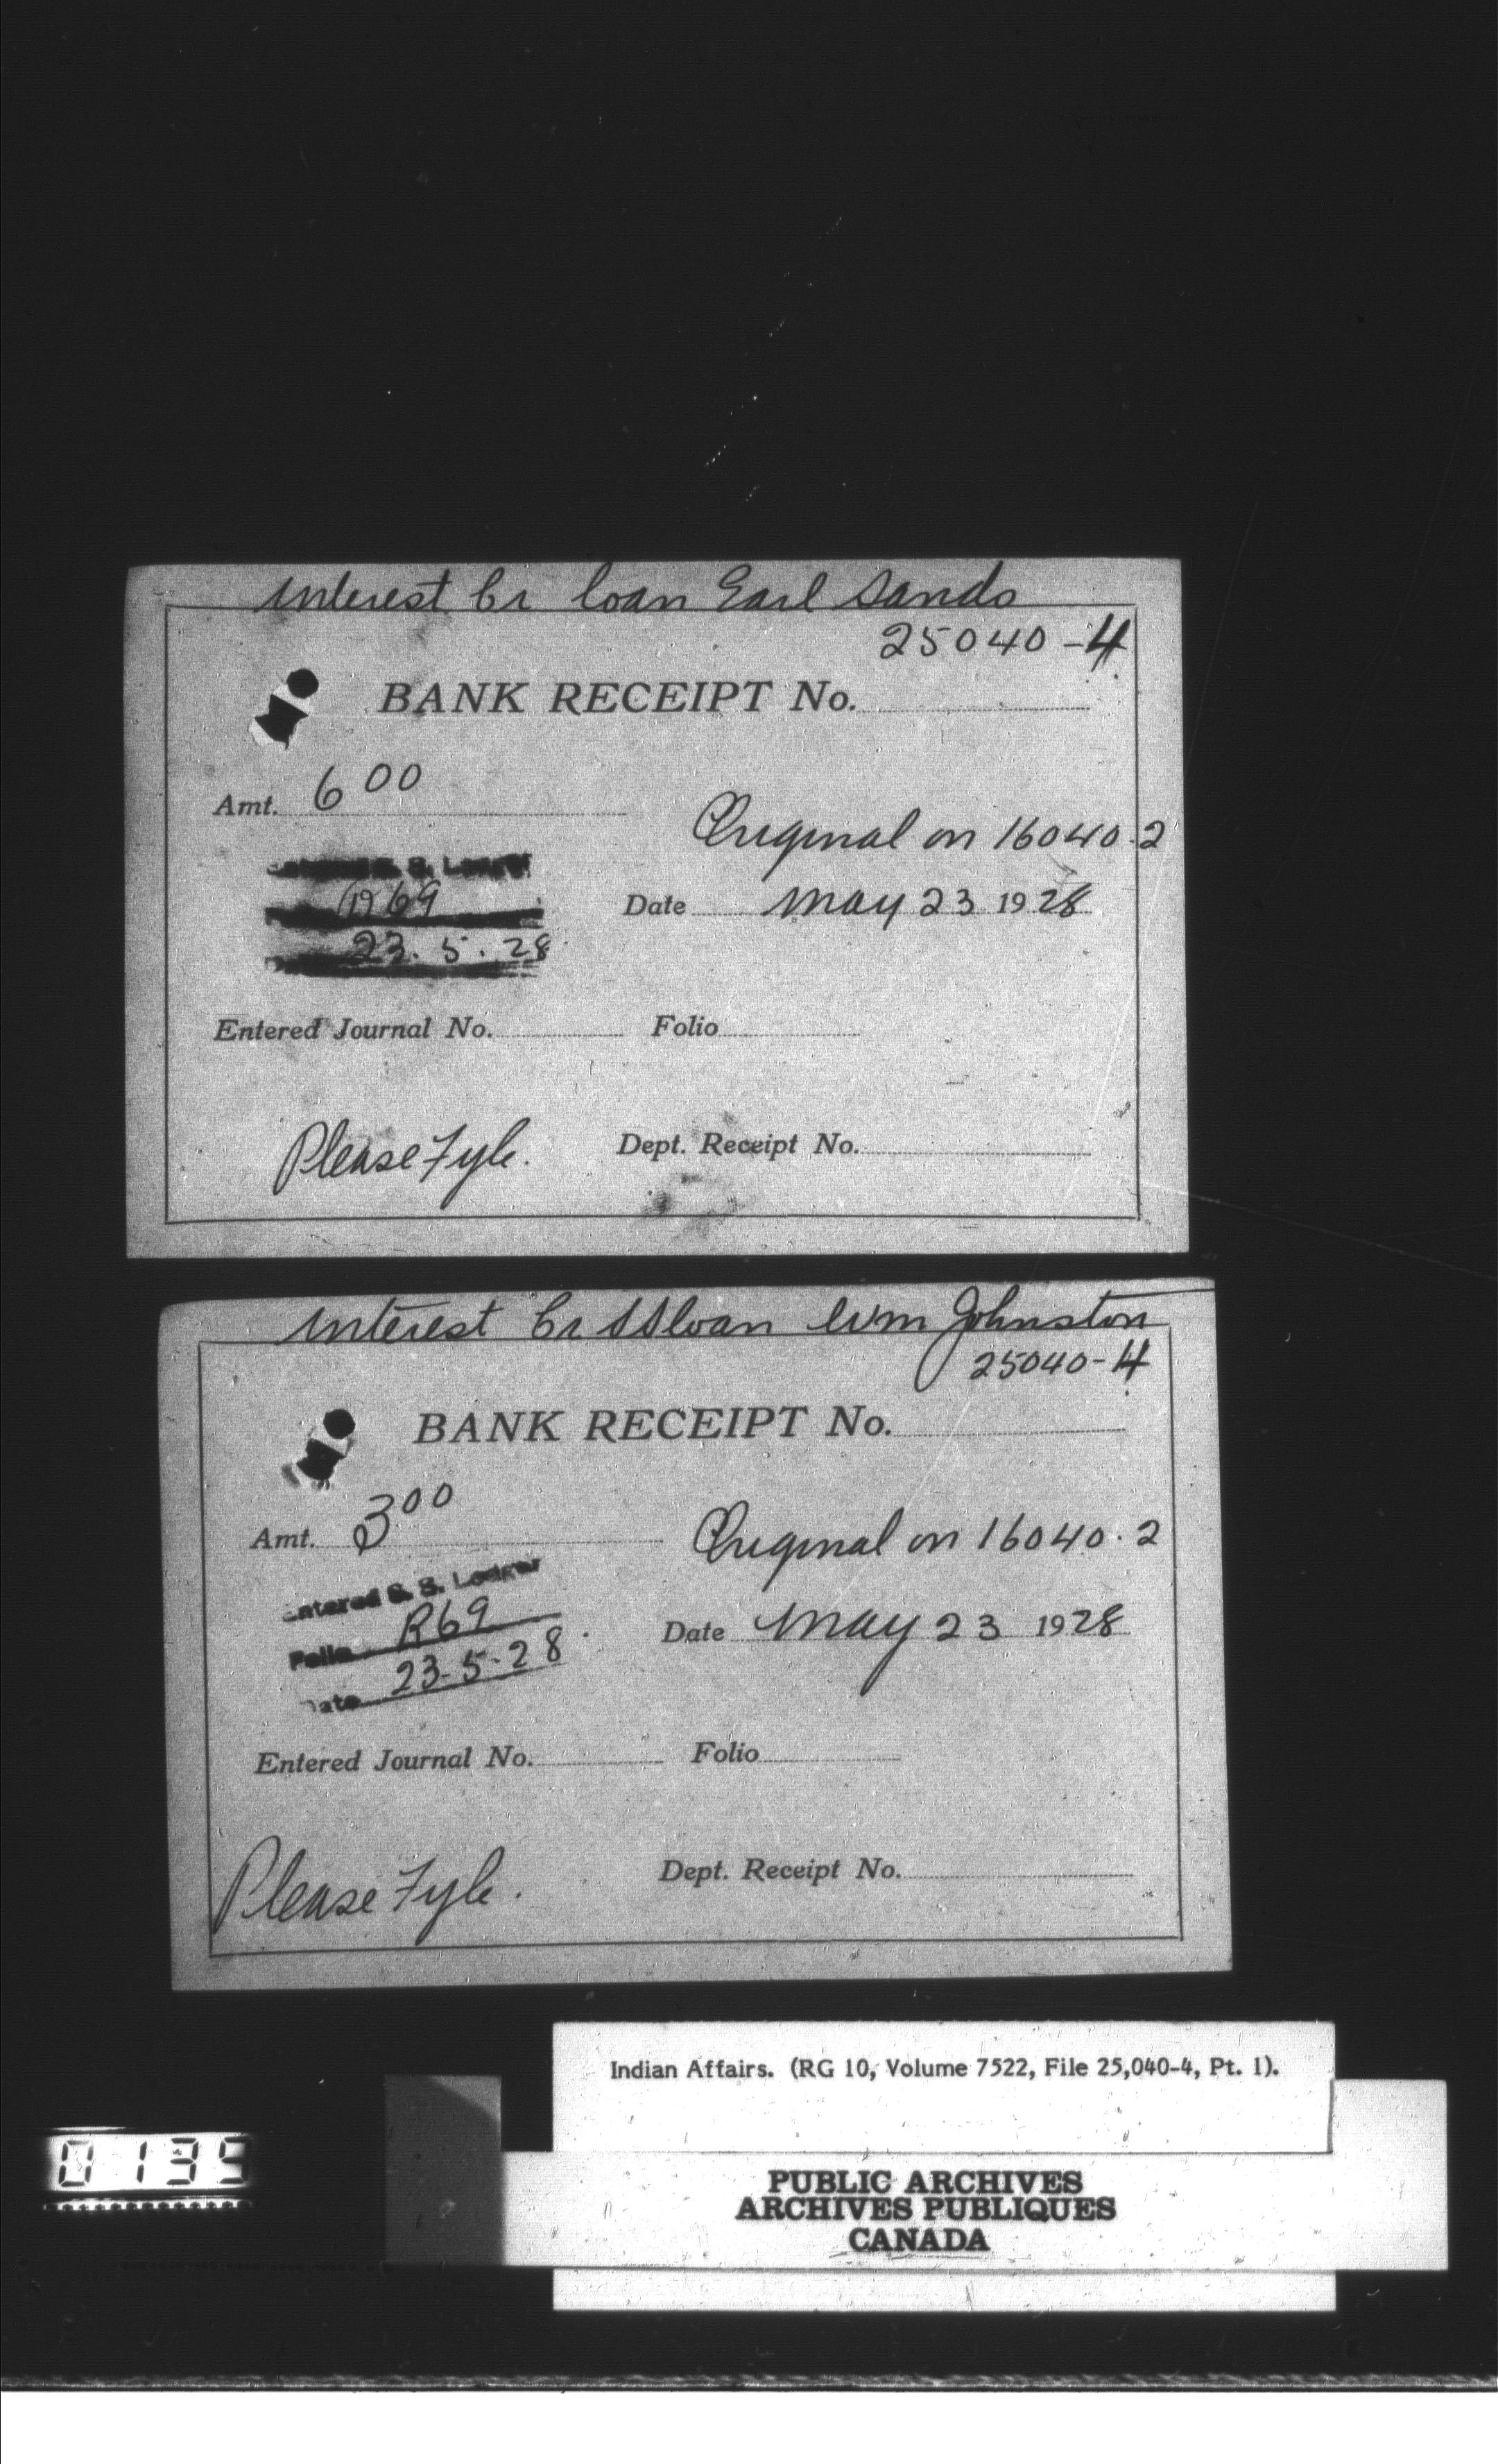 Interest Cr loan Earl Sands
25040-4
BANK RECEIPT No.
Amt. 6 00
Original on 16040.2
R69
Date May 23 1928
23.5.28
Entered Journal No. Folio
Please Fyle. Dept. Receipt No.
Interest Cr SS loan Wm Johnston
25040-4
BANK RECEIPT No.
Amt. 3 00
Original on 16040.2
Entered S. S. Ledger
Folio R69
Date May 23 1928
Date 23-5-28
Entered Journal No. Folio
Please Fyle. Dept. Receipt No.
Indian Affairs. (RG 10, Volume 7522, File 25,040-4, Pt. 1).
0135
PUBLIC ARCHIVES
ARCHIVES PUBLIQUES
CANADA